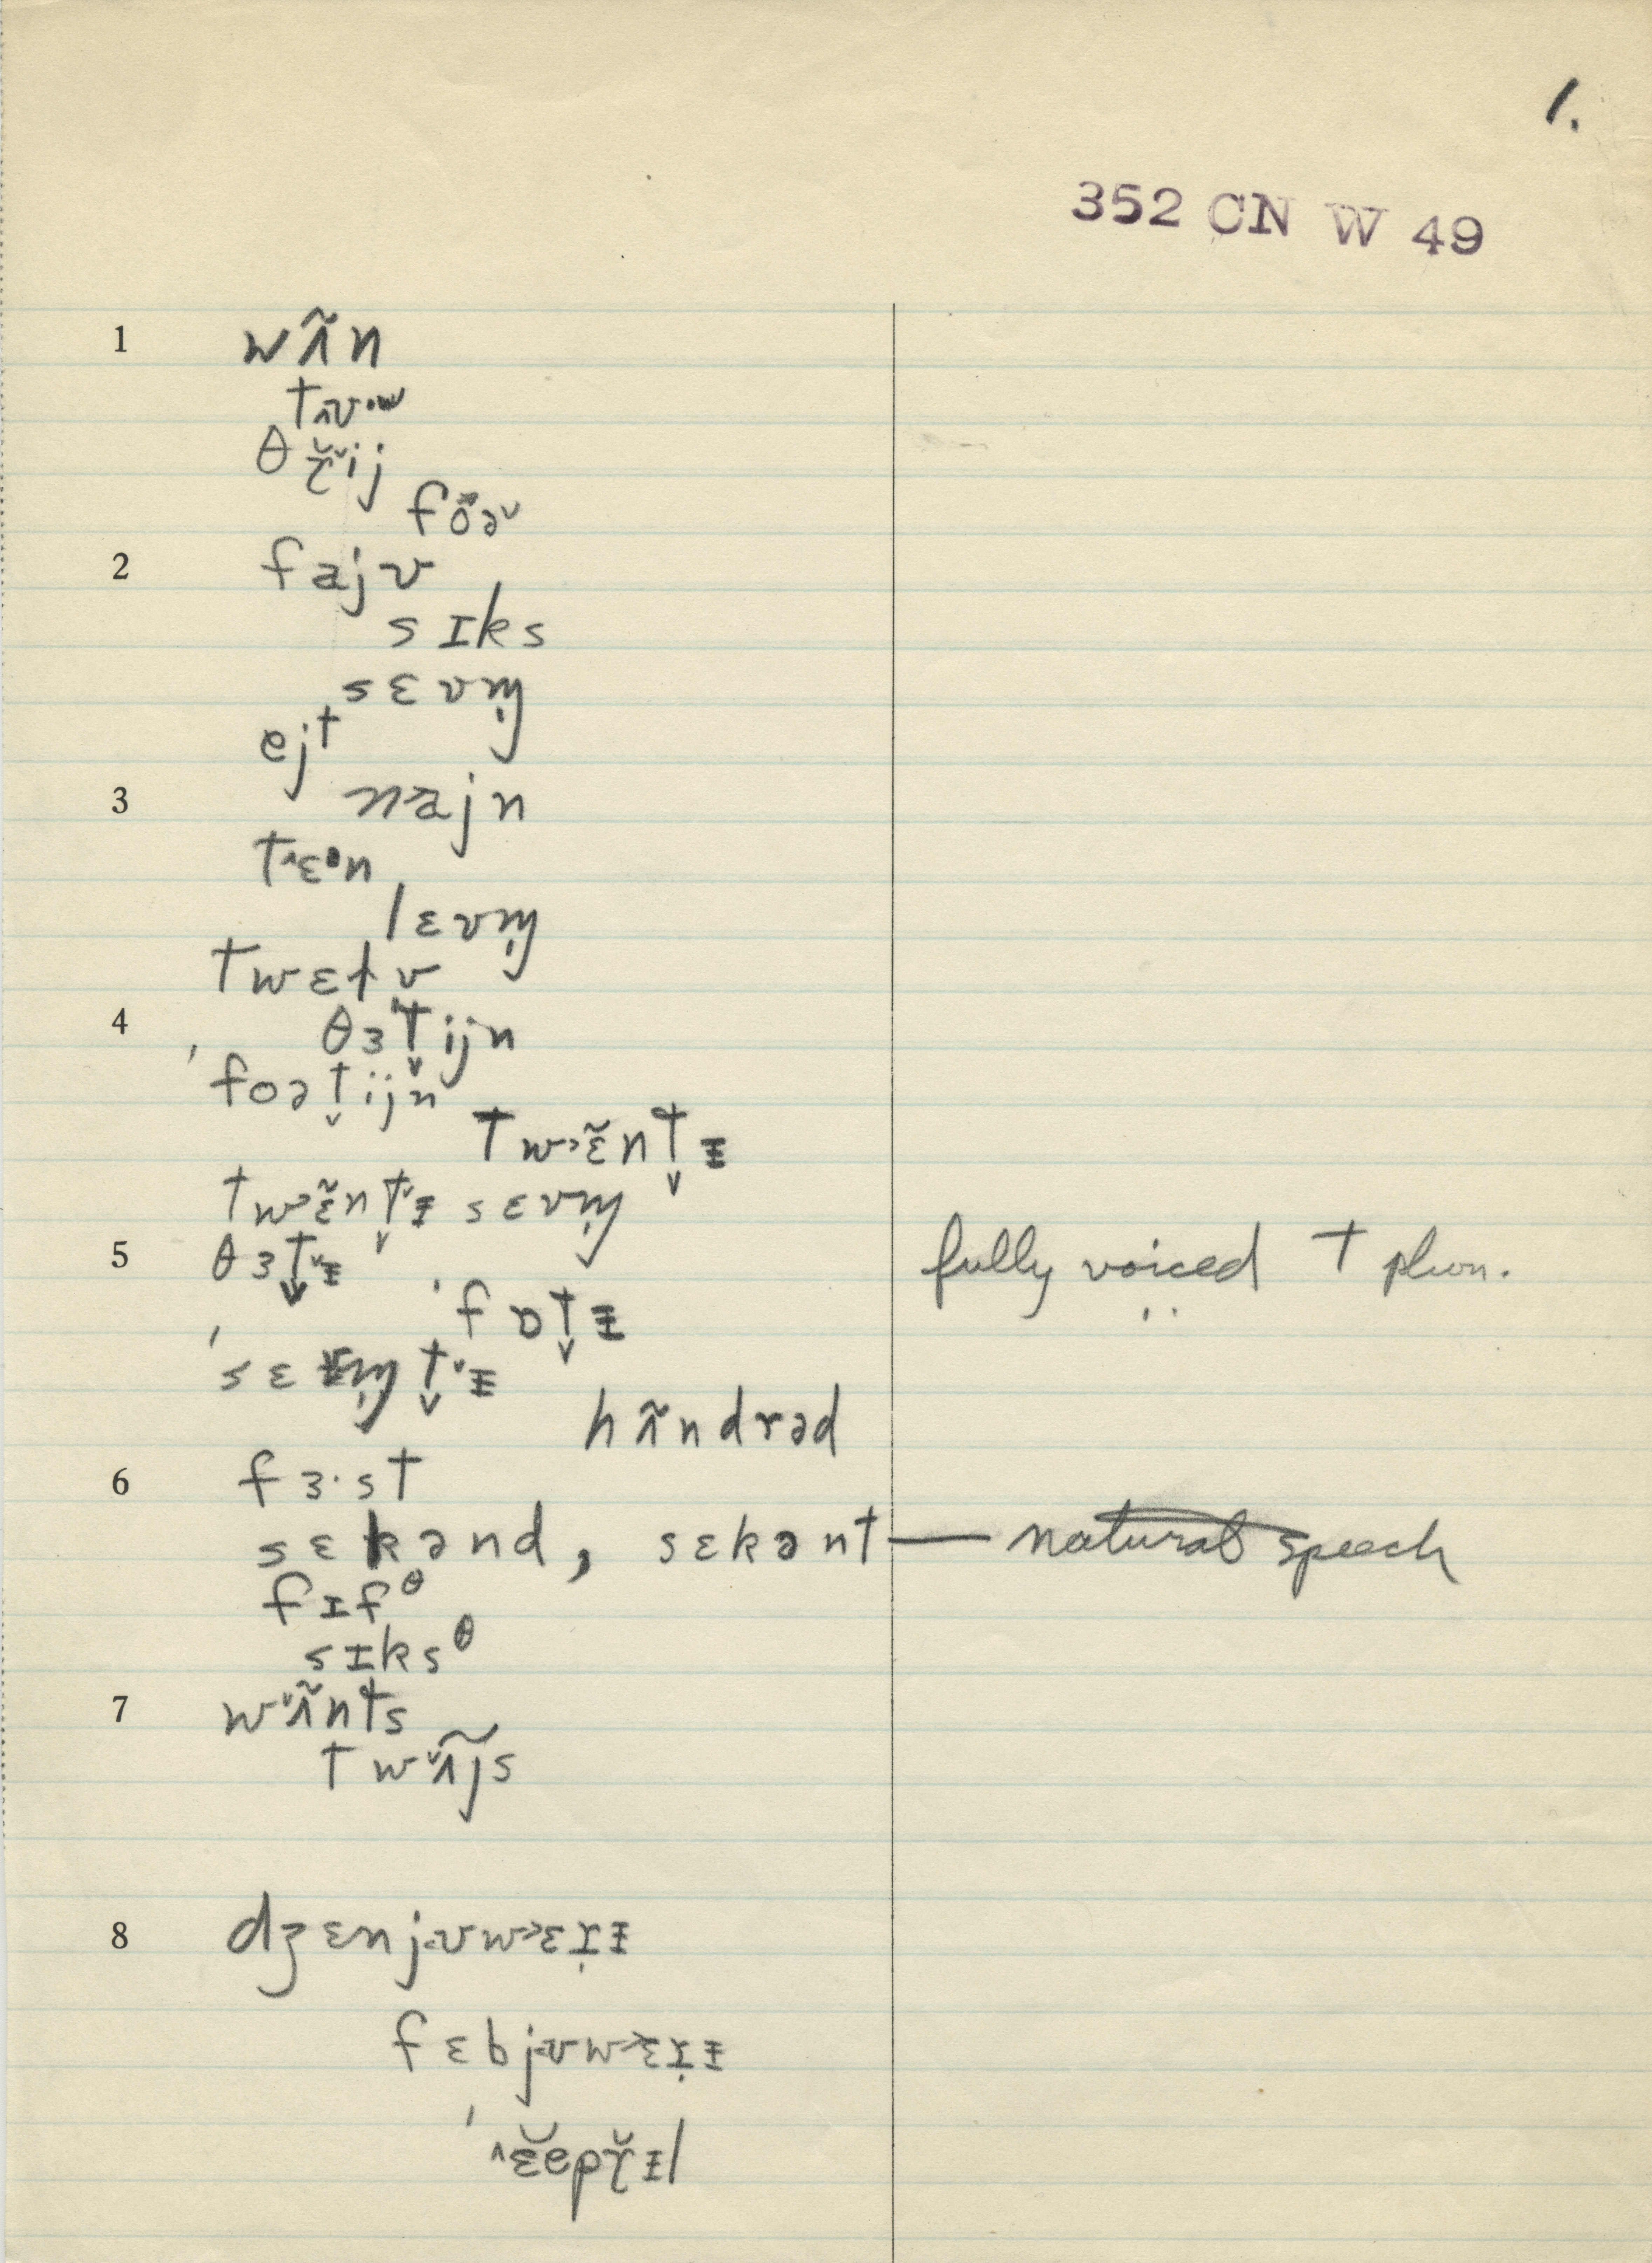 1.
352 CN W 49
1 wʌ̃n
tʌʊ·w
θɹ̆˅ij
fô̴ə˅
2 fajv
sɪks
sɛvm̩
ejt
3 n˃ajn
t˄ɛᵊn
lɛvm̩
twɛɫv
4 θɜt̬ijn
ˈfoət̬ijn
tw˃ɛ̃nt̬ᵻ
tw˃ɛ̃nt̬˅ᵻ sɛvm̩
5 θɜt̬˅ᵻ fully voiced t phon.
ˈfɒt̬ᵻ
ˈsɛvm̩t̬˅ᵻ
hʌ̃ndrəd
6 fɜ·st
sɛkənd, sɛkənt — natural speech
fɪfᶿ
sɪksᶿ
7 w˅ʌ̃nts
tw˅ʌ̃js
8 dʒɛnj˂ʊw˃ɛɹ̣ᵻ
fɛbj˂ʊw˃ɛɹ̣ᵻ
ˈ˄ɛ̆epɹ̆ᵻl